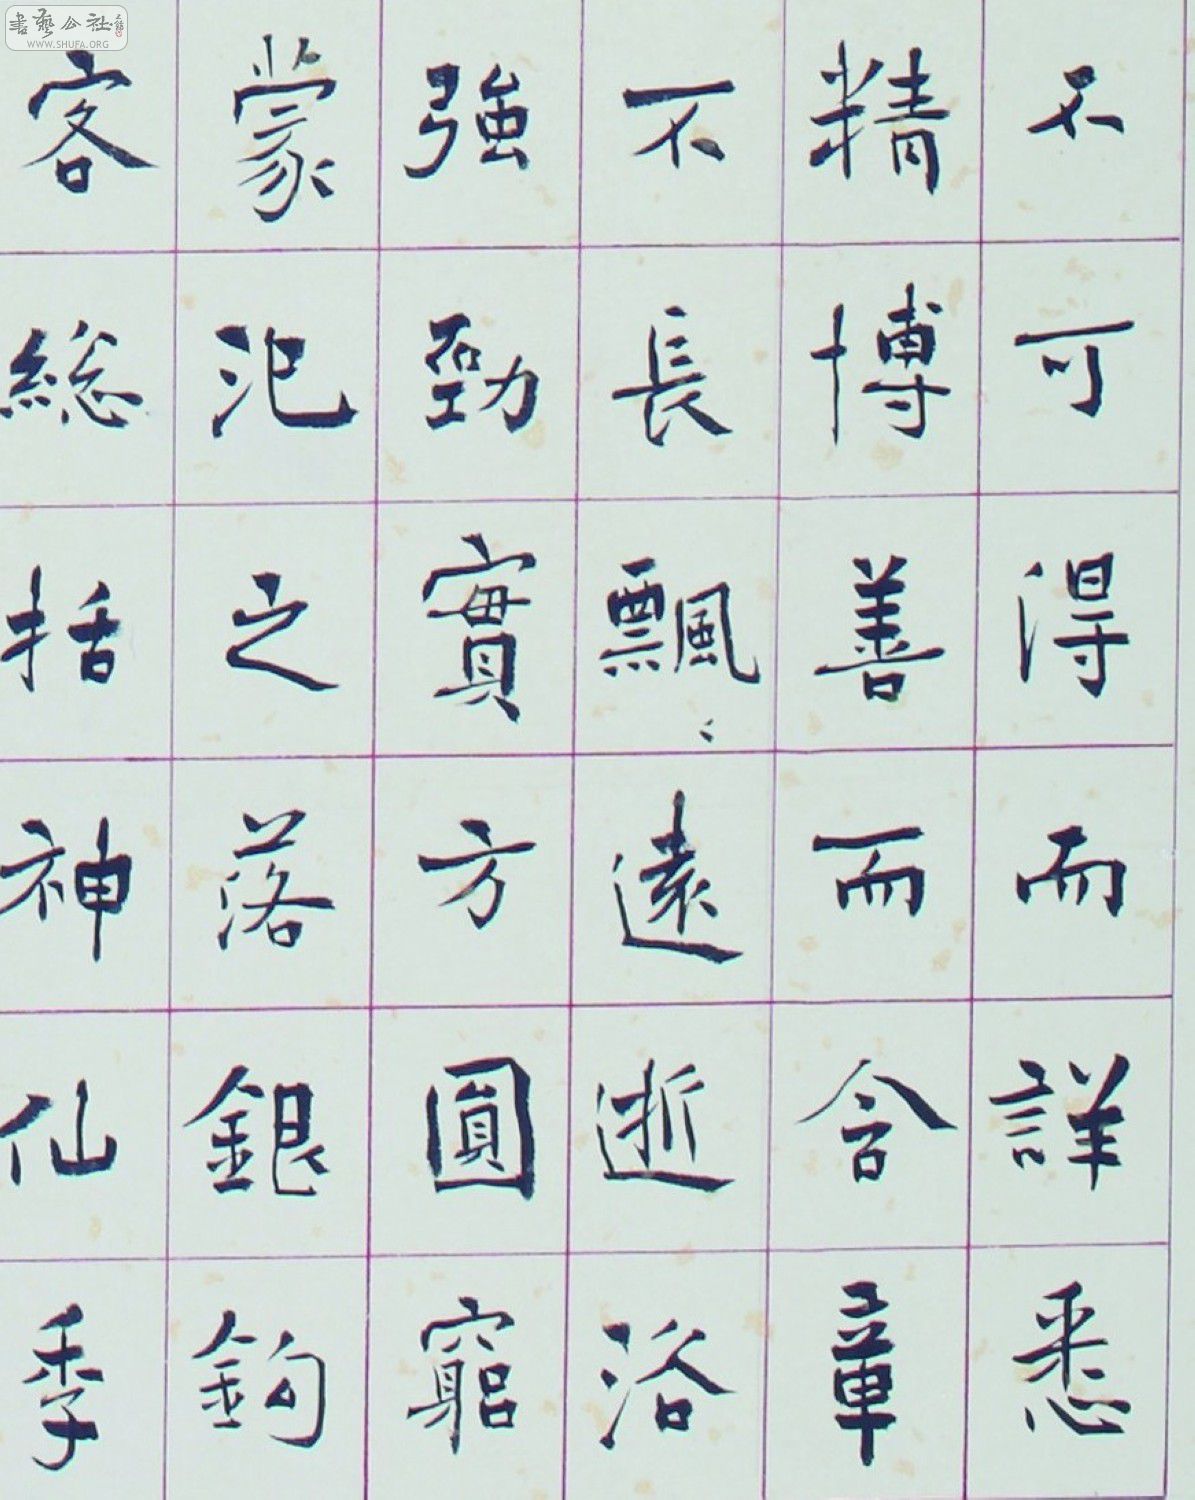 不可得而詳悉
精博善而含章
不長飄遠逝浴
強勁實方圓窮
蒙汜之落銀鉤
客総括神仙季
書藝公社
WWW.SHUFA.ORG